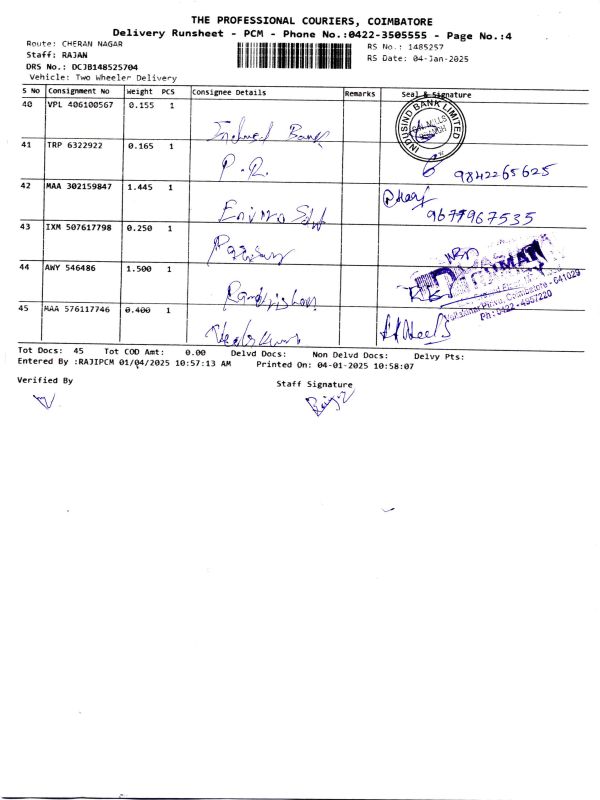 THE PROFESSIONAL COURIERS, COIMBATORE
Delivery Runsheet - PCM - Phone No.:0422-3505555 - Page No.:4
Route: CHERAN NAGAR
RS No.: 1485257
Staff: RAJAN
RS Date: 04-Jan-2025
DRS No.: DCJB148525704
Vehicle: Two Wheeler Delivery
S No Consignment No Weight PCS Consignee Details Remarks Seal & Signature
40 VPL 406100567 0.155 1
INDUSIND BANK LIMITED
Bank
41 TRP 6322922 0.165 1
P.R.
9842265625
42 MAA 302159847 1.445 1
9677967535
43 IXM 507617798 0.250 1
44 AWY 546486 1.500 1
Coimbatore - 641029
Ph: 0422 - 4957220
45 MAA 576117746 0.400 1
Tot Docs: 45 Tot COD Amt: 0.00 Delvd Docs: Non Delvd Docs: Delvy Pts:
Entered By :RAJIPCM 01/04/2025 10:57:13 AM Printed On: 04-01-2025 10:58:07
Verified By
Staff Signature